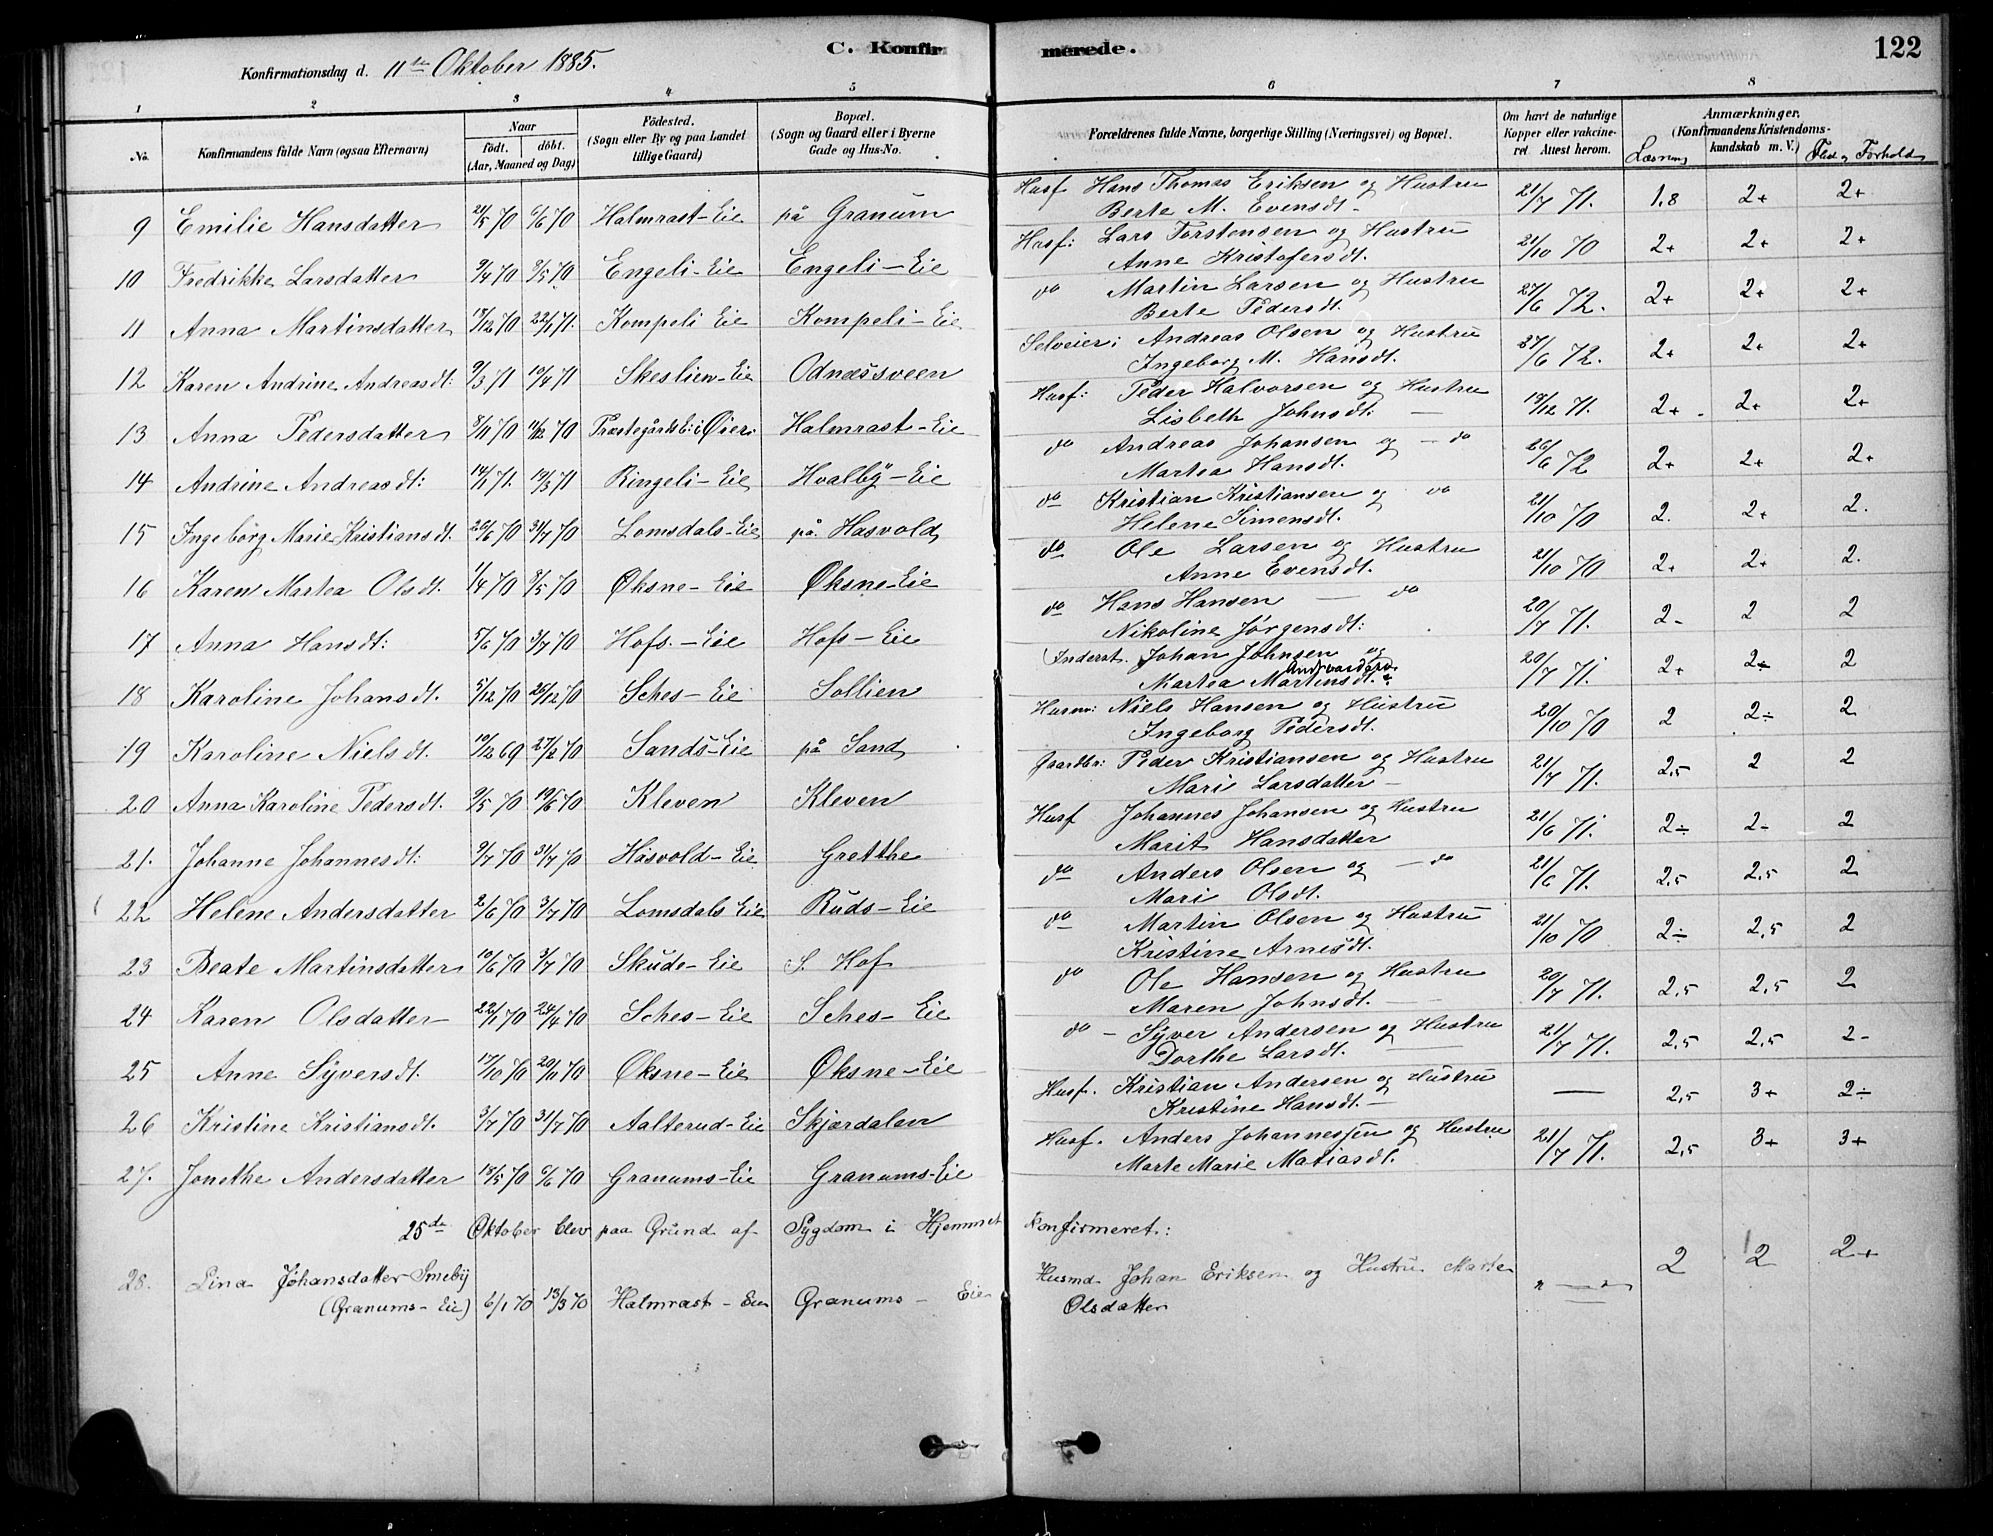 C. Konfirmerede.
122
Konfirmationsdag d. 11te Oktober 1885.
1 2 3 4 5 6 7 8
No.
Konfirmandens fulde Navn (ogsaa Efternavn)
Naar
födt. döbt.
(Aar, Maaned og Dag)
Födested.
(Sogn eller By og paa Landet
tillige Gaard)
Bopæl.
(Sogn og Gaard eller i Byerne
Gade og Hus-No.
Forældrenes fulde Navne, borgerlige Stilling (Næringsvei) og Bopæl.
Om havt de naturlige
Kopper eller vakcine-
ret Attest herom.
Anmærkninger.
(Konfirmandens Kristendoms-
kundskab m. V.)
Læsning Flid og Forhold
Husf Hans Thomas Eriksen og Hustru
9 Emilie Hansdatter 21/5 70 6/6 70 Halmrast-Eie på Granum Berte M. Evensdt. 21/7 71. 1,8 2+ 2+
Husf: Lars Torstensen og Hustru
10 Fredrikke Larsdatter 9/4 70 9/5 70 Engeli-Eie Engeli-Eie Anne Kristofersdt. 21/10 70 2+ 2+ 2+
do Martin Larsen og Hustru
11 Anna Martinsdatter 19/12 70 22/1 71. Kompeli Eie Kompeli-Eie Berte Pedersdt. 27/6 72. 2+ 2+ 2+
Selveier: Andreas Olsen og Hustru
12 Karen Andrine Andreasdt: 9/3 71 10/4 71 Skeslien-Eie Odnæssveen Ingeborg M. Hansdt. 27/6 72. 2+ 2+ 2+
Husf: Peder Halvorsen og Hustru
13 Anna Pedersdatter 9/11 70 11/12 70 Præstegårds Ei i Øier Halmrast-Eie Lisbeth Johnsdt: 19/12 71. 2+ 2+ 2+
do Andreas Johansen og - do
14 Andrine Andreasdt: 14/1 71. 19/3 71 Ringeli-Eie Hvalby-Eie Martea Hansdt. 26/6 72 2+ 2+ 2+
do Kristian Kristiansen og do
15 Ingeborg Marie Kristiansdt. 20/6 70 31/7 70 Lomsdals-Eie på Hasvold Helene Simensdt. 21/10 70 2. 2+ 2.
do Ole Larsen og Hustru
16 Karen Martea Olsdt. 1/4 70 9/5 70 Øksne-Eie Øksne-Eie Anne Evensdt. 21/10 70 2+ 2+ 2.
do Hans Hansen - do
17 Anna Hansdt: 5/6 70 3/7 70 Hofs-Eie Hofs-Eie Nikoline Jørgensdt: 20/7 71. 2- 2 2
Inderst. Johan Johnsen og
18 Karoline Johansdt. 5/12 70 26/12 70 Sches-Eie Sollien Martea Martinsdt. 20/7 71. 2+ 2÷ 2
Husm: Niels Hansen og Hustru
19 Karoline Nielsdt. 10/12 69 27/2 70 Sands-Eie på Sand Ingeborg Pedersdt. 20/10 70 2 2÷ 2
Gaardbr: Peder Kristiansen og Hustru
20 Anna Karoline Pedersdt. 9/5 70 19/6 70 Kleven Kleven Mari Larsdatter - 21/7 71. 2,5 2 2
Husf Johannes Johansen og Hustru
21. Johanne Johannesdt: 9/7 70 31/7 70 Hasvold-Eie Gretthe Marit Hansdatter 21/6 71. 2÷ 2- 2
do Anders Olsen og - do
22 Helene Andersdatter 2/6 70 3/7 70 Lomsdals Eie Ruds-Eie Mari Olsdt. 21/6 71. 2,5 2,5 2
do Martin Olsen og Hustru
23 Beate Martinsdatter 10/6 70 3/7 70 Skuds-Eie S. Hof Kristine Arnesdt. 21/10 70 2÷ 2,5 2
do Ole Hansen og Hustru
24 Karen Olsdatter 22/1 70 24/4 70 Sches-Eie Sches-Eie Maren Johnsdt. 20/7 71. 2,5 2,5 2
do - Syver Andersen og Hustru
25 Anne Syversdt. 17/10 70 20/11 70 Øksne-Eie Øksne-Eie Dorthe Larsdt. 21/7 71. 2,5 2,5 2-
Husf. Kristian Andersen og Hustru
26 Kristine Kristiansdt. 3/7 70 31/7 70 Aalterud-Eie Skjærdalen Kristine Hansdt. - 2,5 3+ 2÷
Husf. Anders Johannessen og Hustru
27. Jonethe Andersdatter 18/5 70 6/6 70 Granums-Eie Granums-Eie Marte Marie Matiasdt. 21/7 71. 2,5 3+ 3+
25de Oktober blev paa Grund af Sygdom i Hjemmet Konfirmeret:
28. Lina Johansdatter Smeby Husmd Johan Eriksen og Hustru Marte 2 2 2+
(Granums-Eie) 6/1 70 13/3 70 Halmrast-Eie Granums-Eie Olsdatter